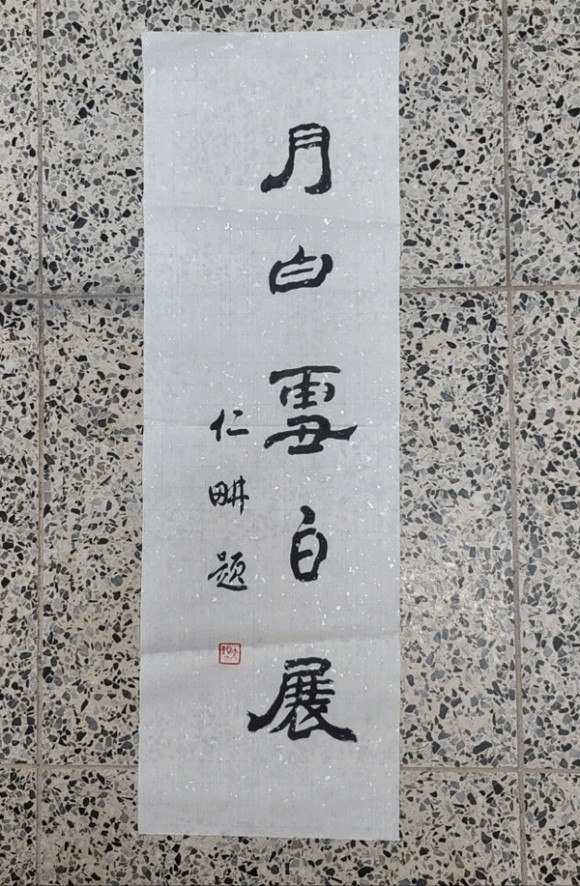 月白雪白展
仁畊題